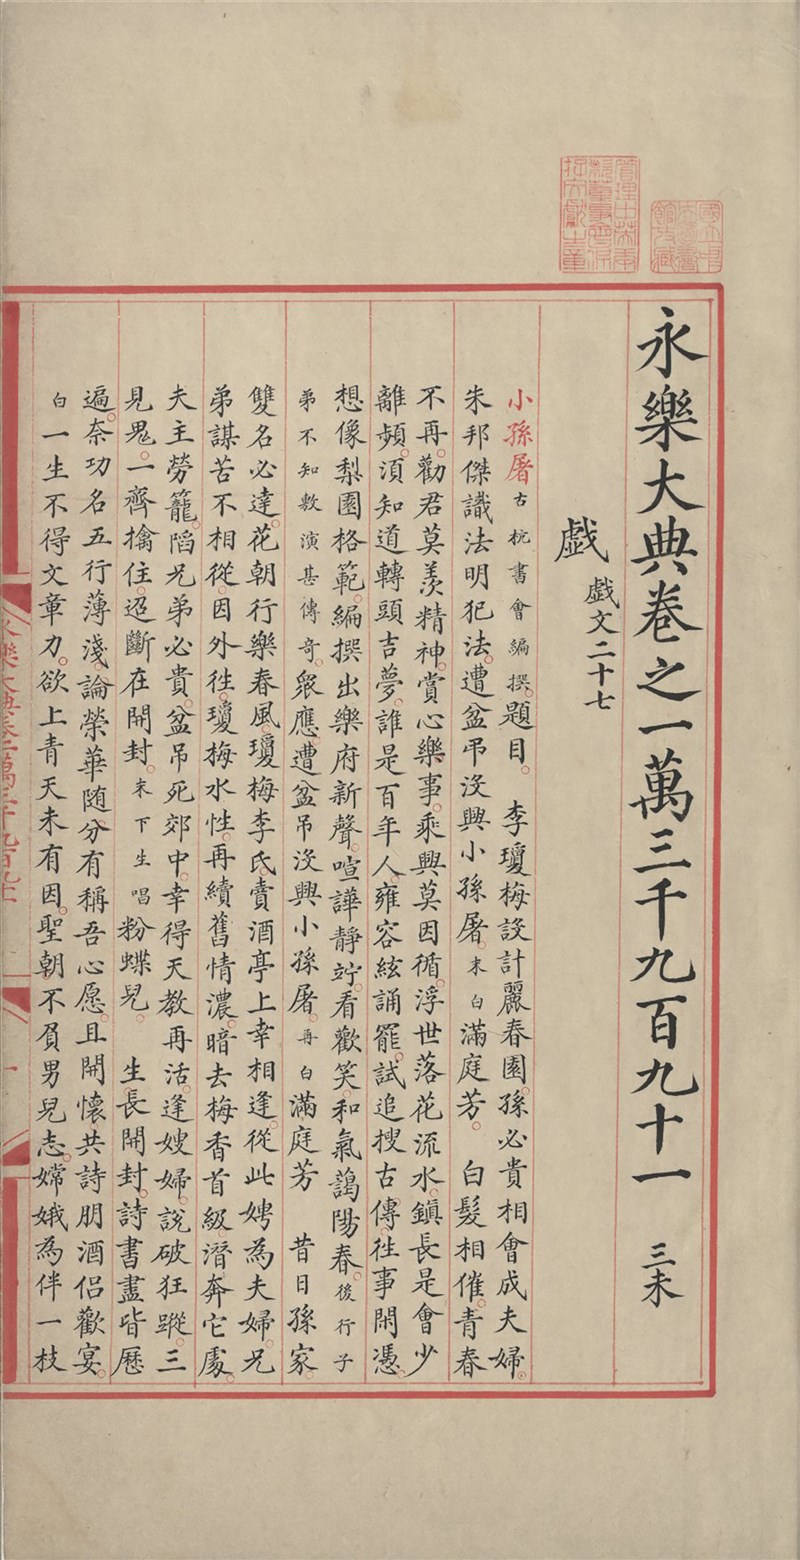 管理中英庚款董事會保存文獻之章
國立中央圖書館收藏
永樂大典卷之一萬三千九百九十一 三未
戯 戯文二十七
小孫屠 古杭書會編撰。題目。 李瓊梅設計麗春園。孫必貴相會成夫婦。
朱邦傑識法明犯法。遭盆弔沒興小孫屠。末白滿庭芳。 白髮相催。青春
不再。勸君莫羨精神。賞心樂事。乘興莫因循。浮世落花流水。鎮長是會少
離頻。須知道轉頭吉夢。誰是百年人。雍容絃誦罷。試追搜古傳。徃事閑憑。
想像梨園格範。編撰出樂府新聲。喧譁靜竚。看歡笑。和氣藹陽春。後行子
弟不知敷演甚傳奇。衆應遭盆吊沒興小孫屠。再白滿庭芳 昔日孫家。
雙名必達。花朝行樂春風。瓊梅李氏。賣酒亭上幸相逢。從此娉為夫婦。兄
弟謀苦不相從。因外徃。瓊梅水性。再續舊情濃。暗去梅香首級。潛奔它處。
夫主勞籠。陷兄弟必貴。盆吊死郊中。幸得天教再活。逢嫂婦。說破狂蹤。三
見鬼。一齊擒住。迢斷在開封。末下生唱粉蝶兒。 生長開封。詩書盡皆歷
遍。奈功名五行薄淺。論榮華随分有稱吾心愿。且開懷共詩朋酒侣歡宴。
白一生不得文章力。欲上青天未有因。聖朝不負男兒志。嫦娥為伴一枝